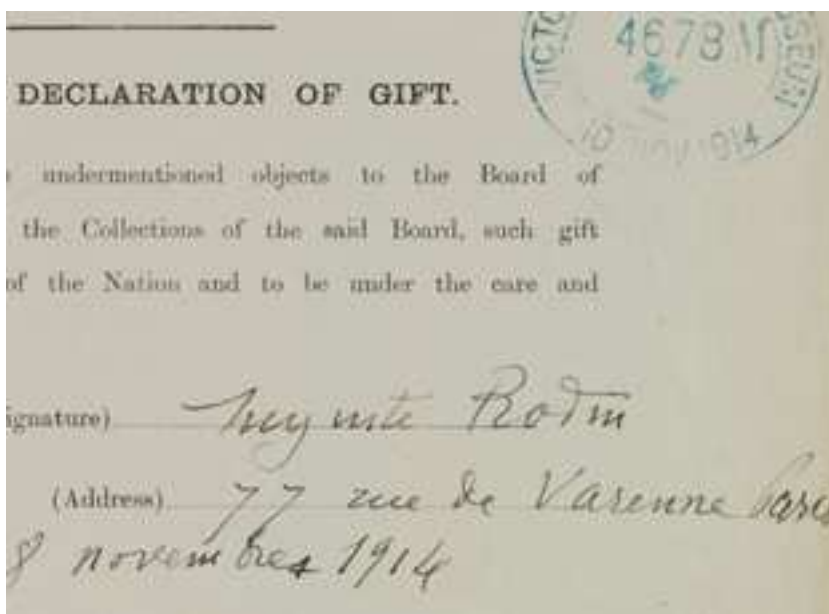 VICTO SEUM
4678 M
10 NOV 1914
DECLARATION OF GIFT.
undermentioned objects to the Board of
the Collections of the said Board, such gift
of the Nation and to be under the care and
ignature) Auguste Rodin
(Address) 77 rue de Varenne Paris
8 novembre 1914